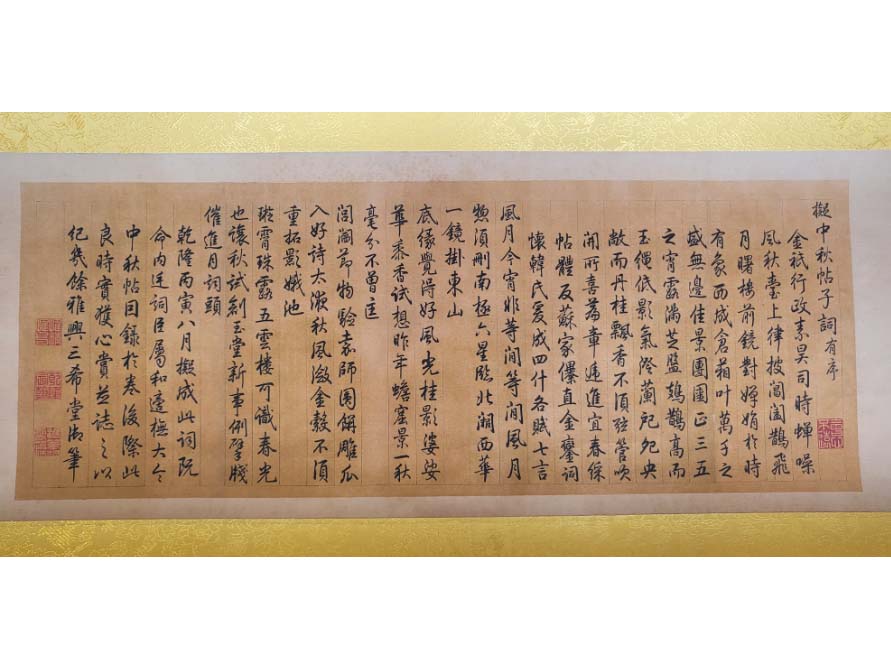 擬中秋帖子詞有序
金祇行政素昊司時蟬噪
風秋臺上律披閶闔鵲飛
月曙樓前鏡對婵娟於時
有象西成倉箱叶萬千之
盛無邊佳景團圞正三五
之宵露滿芝盤鳷鵲高而
玉繩低影氣澄蘭戺夗央
敞而丹桂飄香不須弦管吹
開所喜篇章遞進宜春綵
帖體及蘇家儤直金鑾詞
懷韓氏爰成四什各賦七言
風月今宵非等閒等閒風月
惣須刪南極六星臨北湖西華
一鏡掛東山
底緣覺得好風光桂影婆娑
華黍香試想昨年蟾窟景一秋
毫分不曾差
閶闔節物驗袁師圍餅雕瓜
入好詩太液秋風澂金縠不須
重拓影娥池
璇霄珠露五雲樓可識春光
也讓秋試刱玉堂新事例擘牋
催進月詞頭
乾隆丙寅八月擬成此詞既
命内廷詞臣屬和遂撫大令
中秋帖因録於卷後際此
良時實獲心賞並誌之以
紀幾餘雅興三希堂御筆